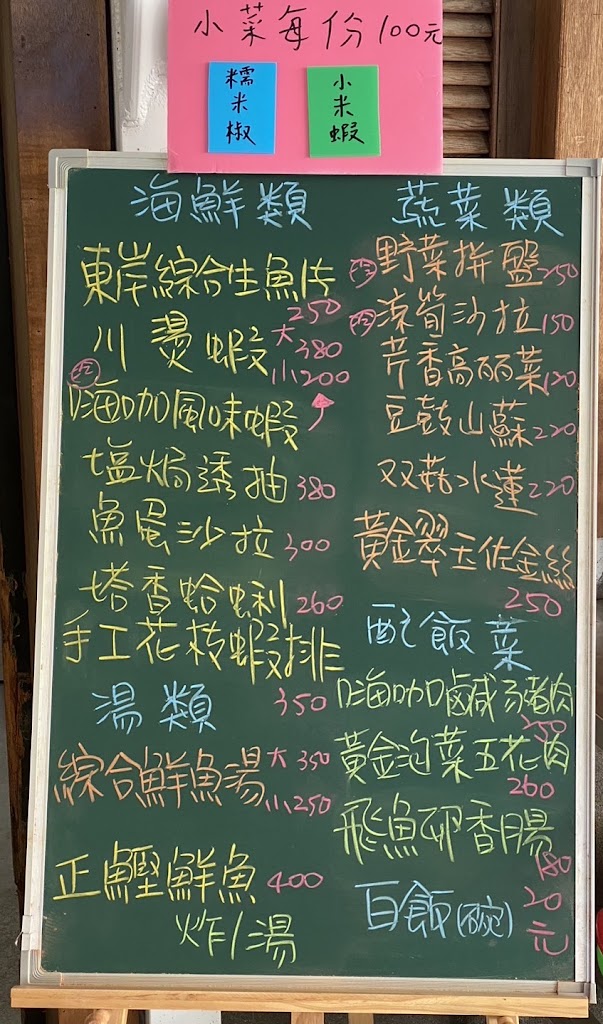 小菜每份100元
糯米椒
小米蝦
海鮮類
東岸綜合生魚片
250
川燙蝦 大380
小200
嗨咖風味蝦
塩焗透抽380
魚蛋沙拉300
塔香蛤蜊260
手工花枝蝦排
350
湯類
綜合鮮魚湯 大350
小250
正鰹鮮魚400
炸/湯
蔬菜類
野菜拼盤250
涼筍沙拉150
芹香高丽菜120
豆鼓山蘇220
双菇水蓮220
黃金翠玉佐金絲
250
配飯菜
嗨咖鹹豬肉
350
黃金泡菜五花肉
260
飛魚卵香腸
180
白飯(碗)20元